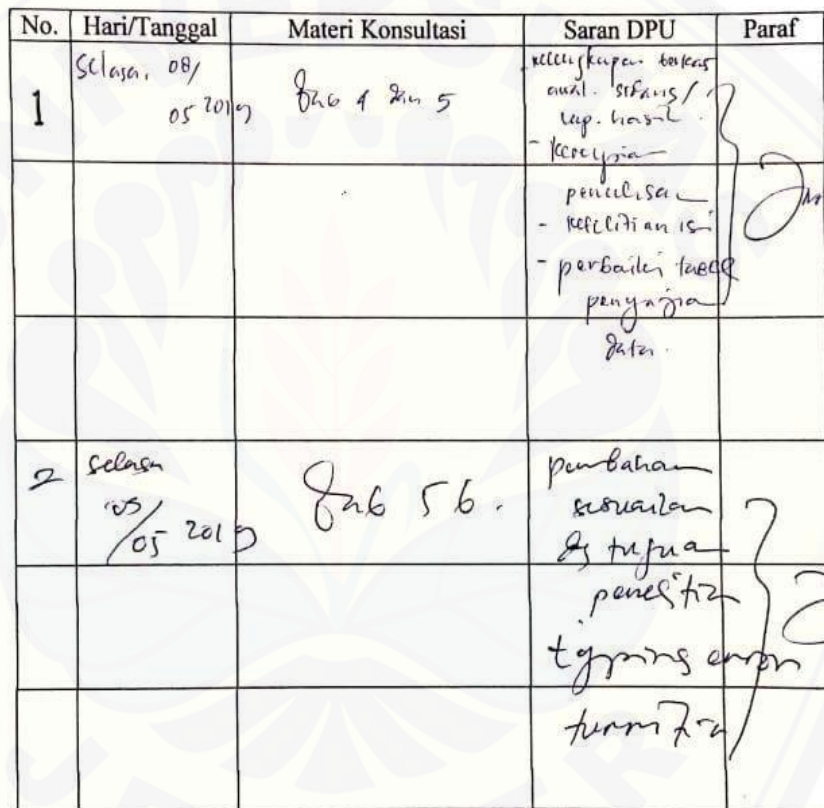 No. Hari/Tanggal Materi Konsultasi Saran DPU Paraf
1
Selasa, 08/
05 2019
Bab 4 dan 5
kelengkapan berkas
awal. sidang/
lap. hasil.
-
penulisan
- ketelitian isi
- perbaiki tabel
penyajian
data.
2
selasa
05
/05 2019
Bab 5 6.
pembahasan
sesuaikan
dg tujuan
penelitian
typing error
turnitin